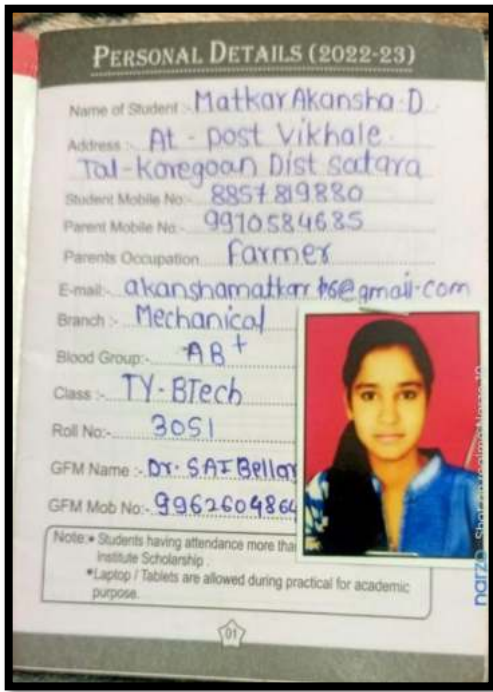 PERSONAL DETAILS (2022-23)
Name of Student :- Matkar Akansha.D
Address :- At - post Vikhale.
Tal-Koregoan Dist satara
Student Mobile No:- 8857819880
Parent Mobile No.- 9970584685
Parents Occupation Farmer
E-mail:- @gmail.com
Branch :- Mechanical
Blood Group:- AB+
Class :- TY-BTech
Roll No:- 3051
GFM Name :- Dr. SAI Bellar
GFM Mob No:- 9962604864
Note:• Students having attendance more tha
Institute Scholarship .
•Laptop / Tablets are allowed during practical for academic
purpose.
01
narzo Shot on realme Narzo 10